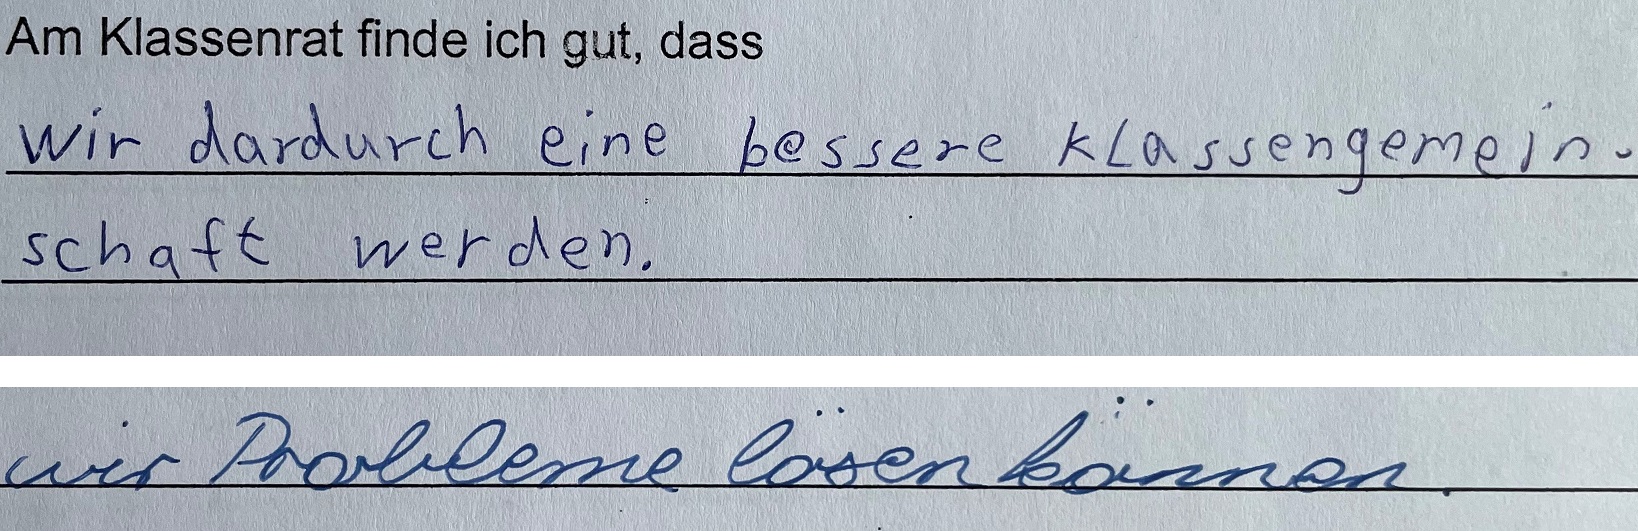 Am Klassenrat finde ich gut, dass
wir dardurch eine bessere klassengemein-
schaft werden.
wir Probleme lösen können.